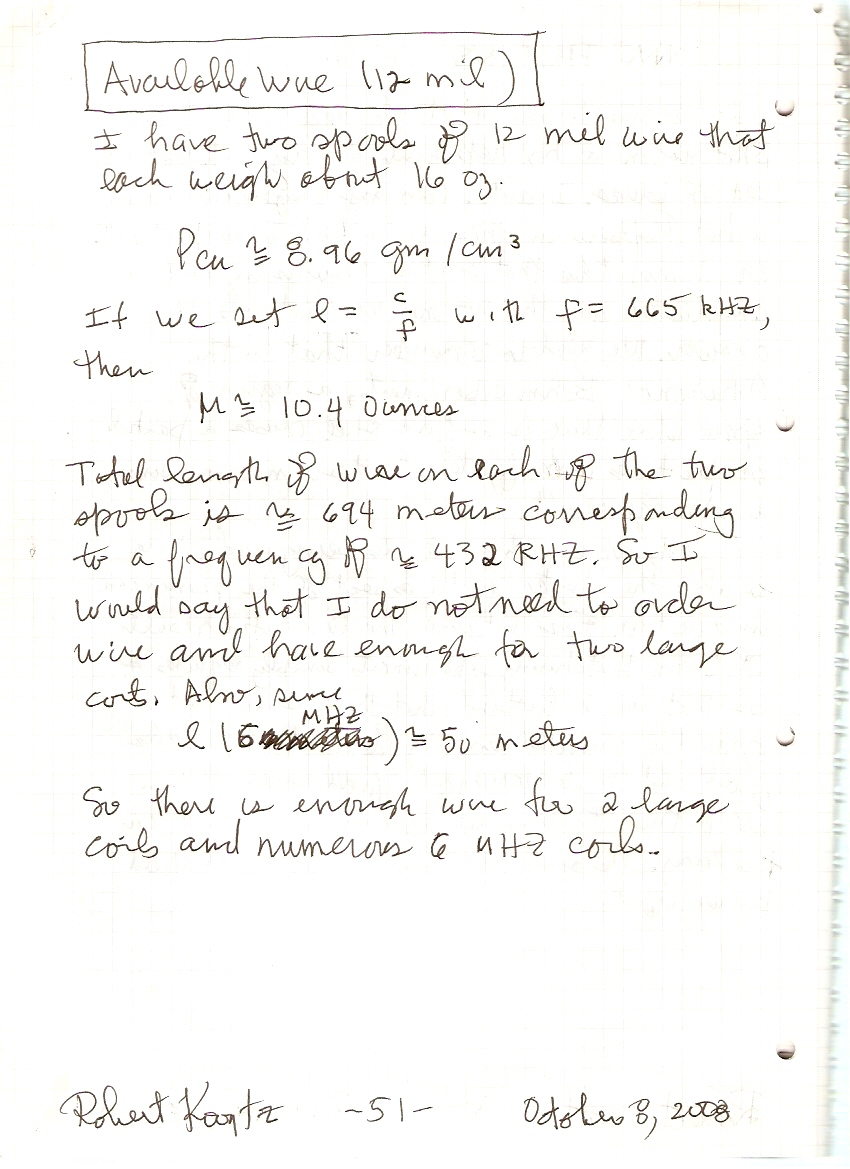 Available Wire (12 mil)
I have two spools of 12 mil wire that
each weigh about 16 oz.
ρcu ≅ 8.96 gm/cm³
If we set l = c/f with f = 665 kHZ,
then
M ≅ 10.4 Ounces
Total length of wire on each of the two
spools is ≅ 694 meters corresponding
to a frequency of ≅ 432 KHZ. So I
would say that I do not need to order
wire and have enough for two large
coils. Also, since
l (6 MHZ) ≅ 50 meters
So there is enough wire for 2 large
coils and numerous 6 MHZ coils.
Robert -51- October 8, 2008